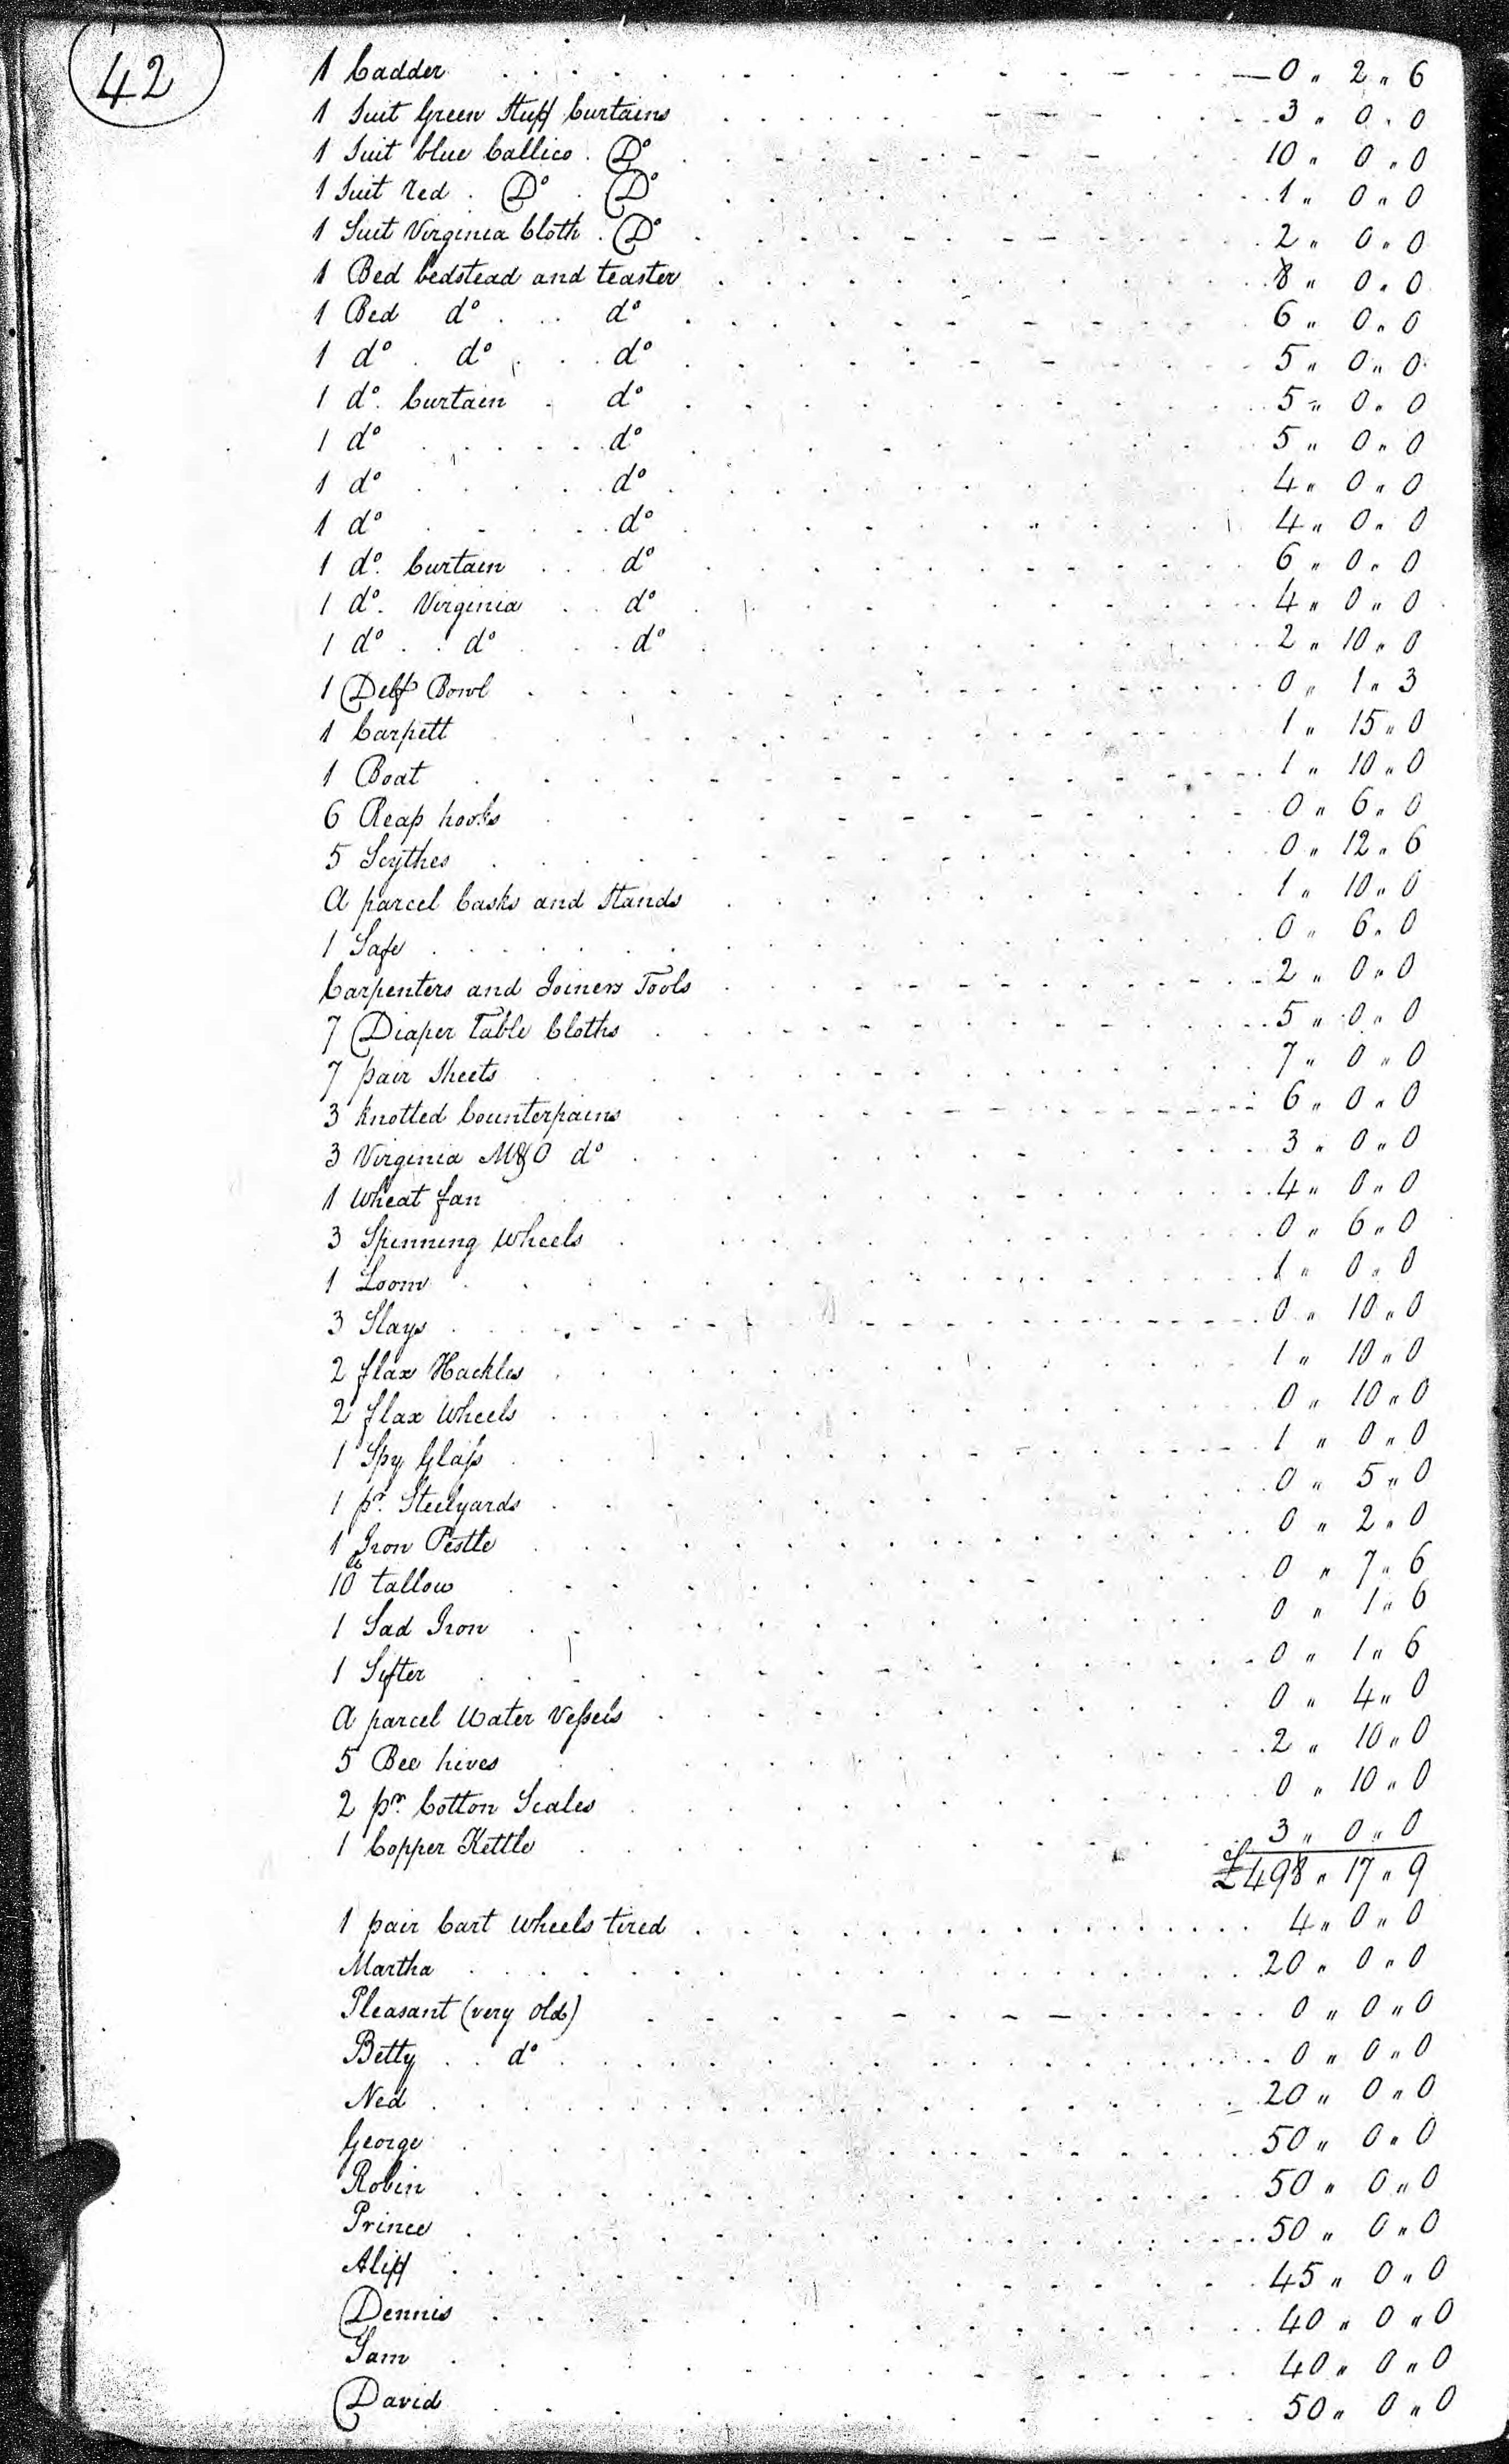 42
1 Cadder 0 " 2 " 6
1 Suit Green Stuff Curtains 3 " 0 " 0
1 Suit blue Callico . Do 10 " 0 " 0
1 Suit red . Do . Do 1 " 0 " 0
1 Suit Virginia Cloth . Do 2 " 0 " 0
1 Bed bedstead and teaster 8 " 0 " 0
1 Bed do . . do 6 " 0 " 0
1 do . do . . do 5 " 0 " 0
1 do. Curtain . do 5 " 0 " 0
1 do . . . . do 5 " 0 " 0
1 do . . . . do 4 " 0 " 0
1 do . . . . do 4 " 0 " 0
1 do. Curtain . . do 6 " 0 " 0
1 do. Virginia . . do 4 " 0 " 0
1 do . . do . . do 2 " 10 " 0
1 Delf Bowl 0 " 1 " 3
1 Carpett 1 " 15 " 0
1 Boat 1 " 10 " 0
6 Reap hooks 0 " 6 " 0
5 Scythes 0 " 12 " 6
A parcel Casks and Stands 1 " 10 " 0
1 Safe 0 " 6 " 0
Carpenters and Joiners Tools 2 " 0 " 0
7 Diaper Table Cloths 5 " 0 " 0
7 pair Sheets 7 " 0 " 0
3 Knotted Counterpains 6 " 0 " 0
3 Virginia M&O do 3 " 0 " 0
1 Wheat fan 4 " 0 " 0
3 Spinning Wheels 0 " 6 " 0
1 Loom 1 " 0 " 0
3 Slays 0 " 10 " 0
2 flax Hackles 1 " 10 " 0
2 flax Wheels 0 " 10 " 0
1 Spy Glass 1 " 0 " 0
1 pr. Steelyards 0 " 5 " 0
1 Iron Pestle 0 " 2 " 0
10 tallow 0 " 7 " 6
1 Sad Iron 0 " 1 " 6
1 Sifter 0 " 1 " 6
A parcel Water Vessels 0 " 4 " 0
5 Bee hives 2 " 10 " 0
2 pr. Cotton Scales 0 " 10 " 0
1 Copper Kettle 3 " 0 " 0
£498 " 17 " 9
1 pair Cart Wheels tired 4 " 0 " 0
Martha 20 " 0 " 0
Pleasant (very old) 0 " 0 " 0
Betty . . do 0 " 0 " 0
Ned 20 " 0 " 0
George 50 " 0 " 0
Robin 50 " 0 " 0
Prince 50 " 0 " 0
Aliff 45 " 0 " 0
Dennis 40 " 0 " 0
Sam 40 " 0 " 0
David 50 " 0 " 0